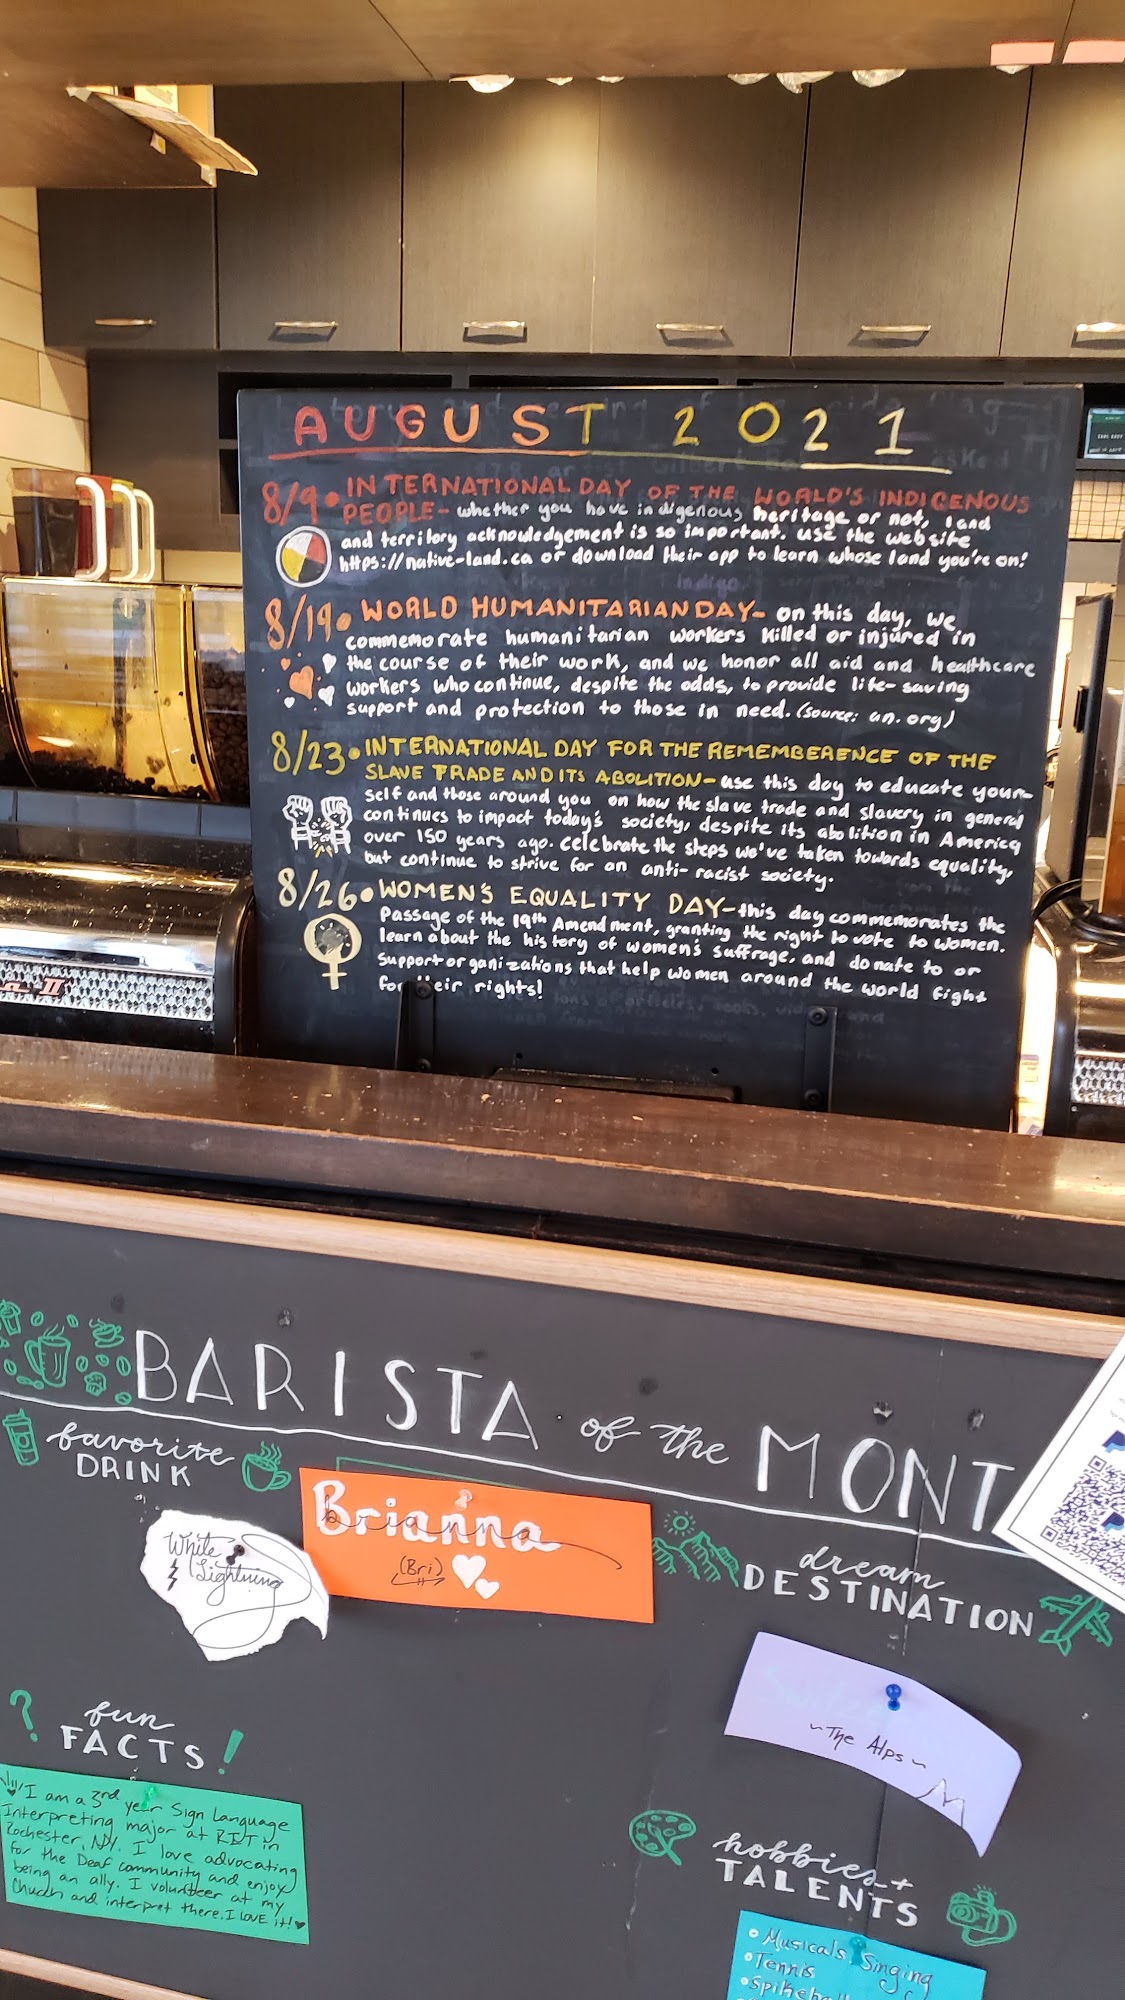 AUGUST 2021
8/9 • INTERNATIONAL DAY OF THE WORLD'S INDIGENOUS
PEOPLE - whether you have indigenous heritage or not, land
and territory acknowledgement is so important. use the website
https://native-land.ca or download their app to learn whose land you're on!
8/19 • WORLD HUMANITARIAN DAY - on this day, we
commemorate humanitarian workers killed or injured in
the course of their work, and we honor all aid and healthcare
workers who continue, despite the odds, to provide life-saving
support and protection to those in need. (source: un.org)
8/23 • INTERNATIONAL DAY FOR THE REMEMBERENCE OF THE
SLAVE TRADE AND ITS ABOLITION - use this day to educate your-
self and those around you on how the slave trade and slavery in general
continues to impact today's society, despite its abolition in America
over 150 years ago. celebrate the steps we've taken towards equality,
but continue to strive for an anti-racist society.
8/26 • WOMEN'S EQUALITY DAY - this day commemorates the
passage of the 19th Amendment, granting the right to vote to women.
learn about the history of women's suffrage, and donate to or
support organizations that help women around the world fight
for their rights!
BARISTA of the MONT
favorite
DRINK
White
Lightning
Brianna
brianna
(Bri)
dream
DESTINATION
~The Alps~
? fun
FACTS !
I am a 3rd year Sign Language
Interpreting major at RIT in
Rochester, NY. I love advocating
for the Deaf community and enjoy
being an ally. I volunteer at my
Church and interpret there. I LOVE it!
hobbies +
TALENTS
• Musicals, Singing
• Tennis
• Spikeball